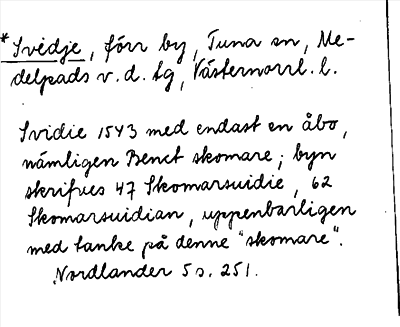 *Svedje, förr by, Tuna sn, Me-
delpads v. d. tg, Västernorrl. l.
Svidie 1543 med endast en åbo,
nämligen Benct skomare; byn
skrifves 47 Skomarsuidie, 62
Skomarsuidian, uppenbarligen
med tanke på denne "skomare".
Nordlander 5 s. 251.